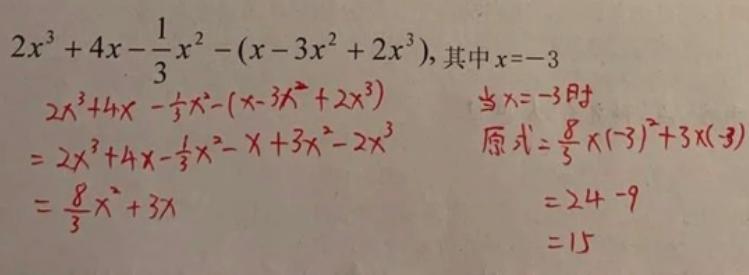 2x³ + 4x − 1/3 x² − (x − 3x² + 2x³), 其中 x=−3
2x³+4x −1/3x²−(x−3x²+2x³)
= 2x³+4x−1/3x²−x+3x²−2x³
= 8/3x²+3x
当x=−3时
原式=8/3×(−3)²+3×(−3)
=24−9
=15